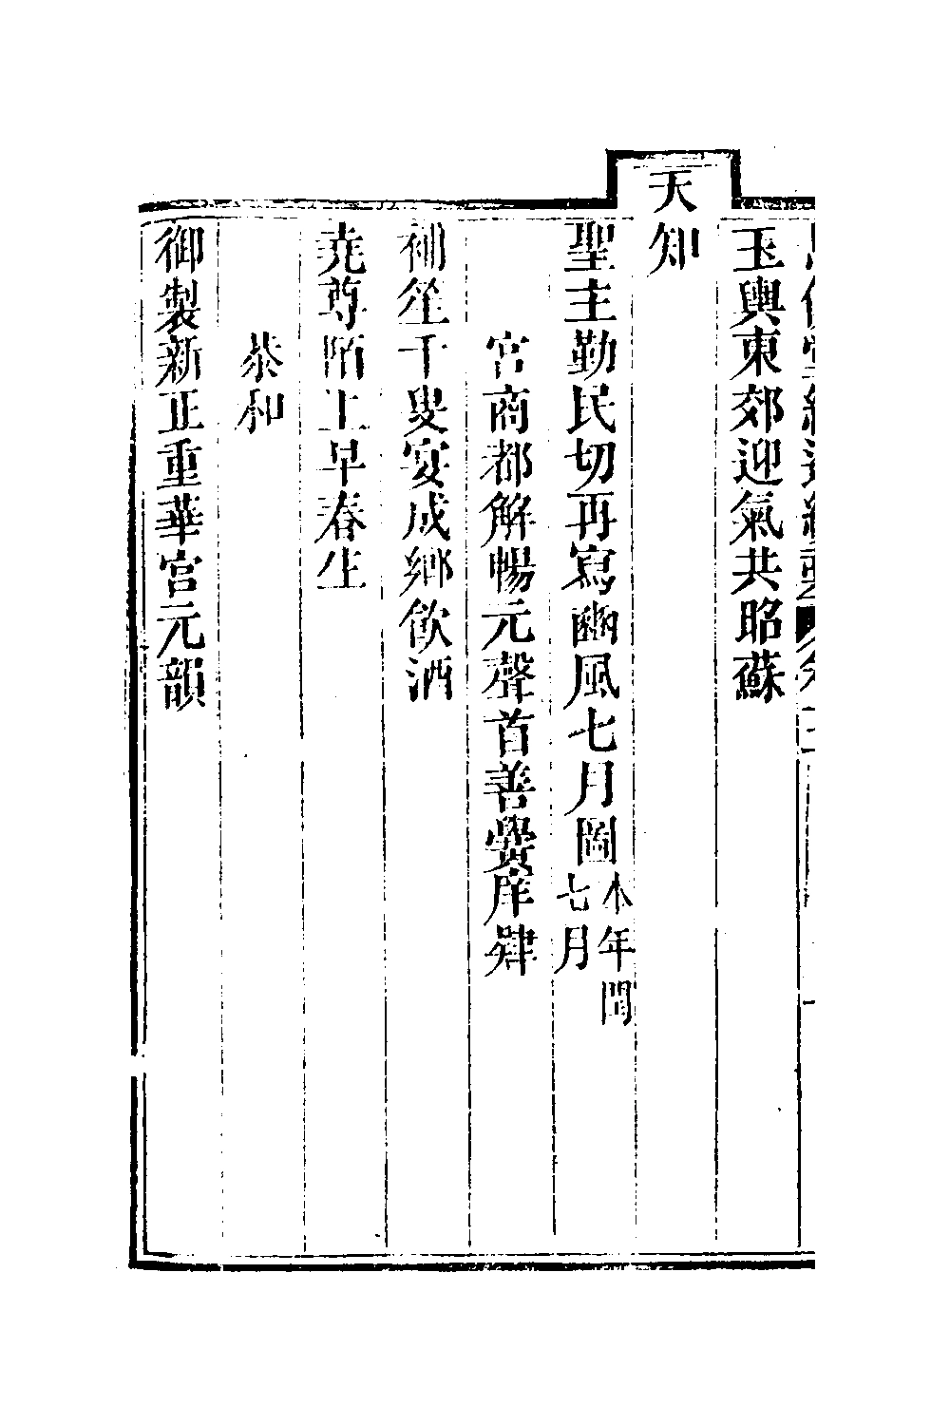 玉輿東郊迎氣共昭蘇
天知
聖主勤民切再寫豳風七月圖本年閏七月
宮商都解暢元聲首善黌庠肄
補笙千叟宴成鄉飲酒
堯尊陌上早春生
恭和
御製新正重華宮元韻